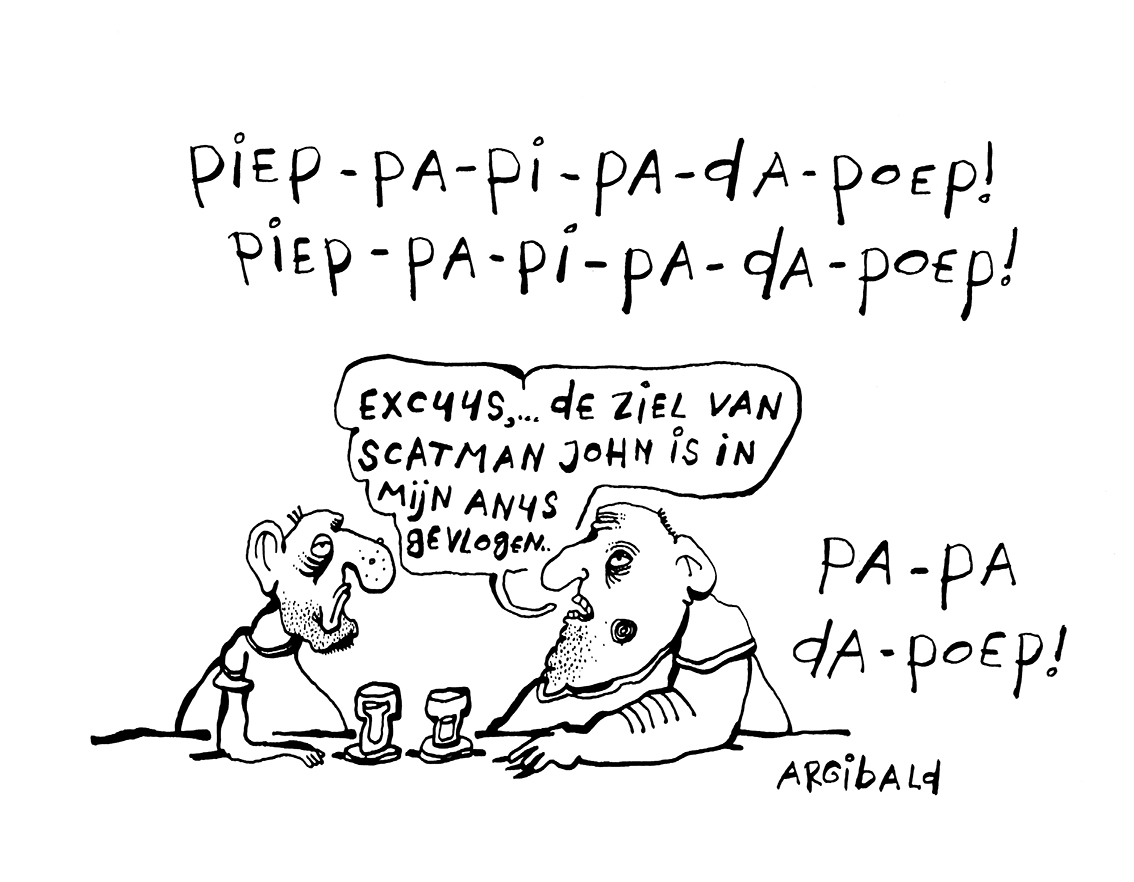 PiEP-PA-Pi-PA-dA-POEP!
PiEP-PA-Pi-PA-dA-POEP!
EXCUUS,... dE ZiEL VAN
SCATMAN JOHN iS iN
MijN ANUS
gEVLOgEN..
PA-PA
dA-POEP!
ARGibALd